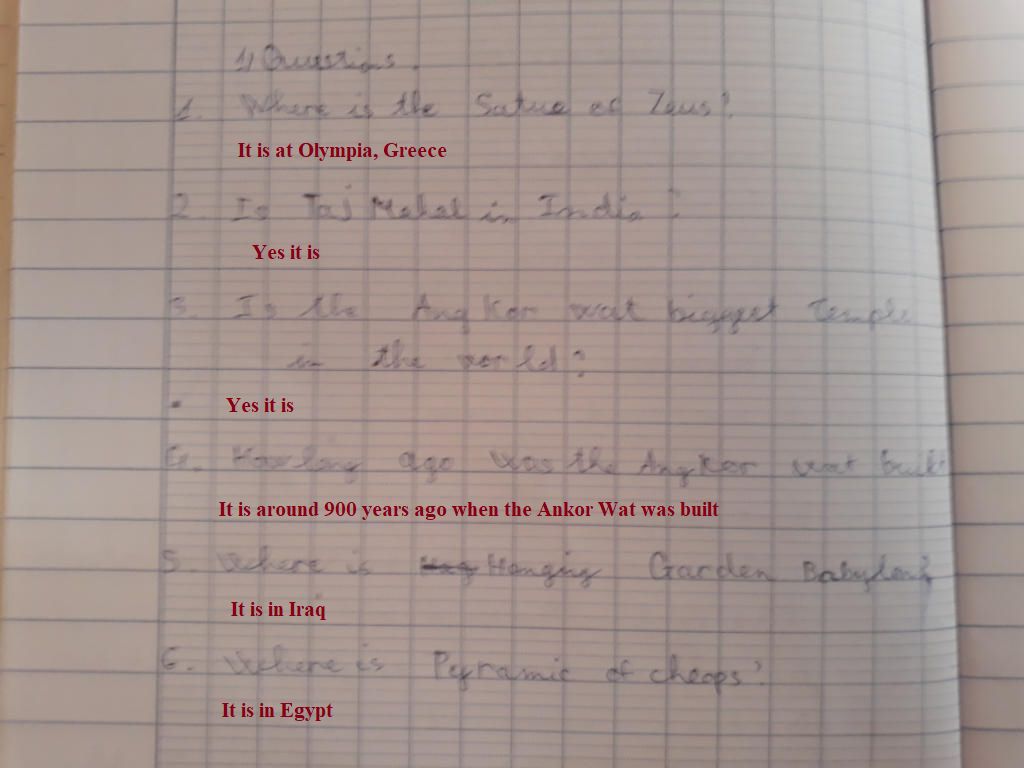 1) Questions.
1. Where is the Satue of Zeus?
It is at Olympia, Greece
2. Is Taj Mahal in India ?
Yes it is
3. Is the Angkor wat biggest temple
in the world?
Yes it is
4. How long ago was the Angkor wat built
It is around 900 years ago when the Ankor Wat was built
5. Where is Hanging Garden Babylon?
It is in Iraq
6. Where is Pyramic of cheops?
It is in Egypt